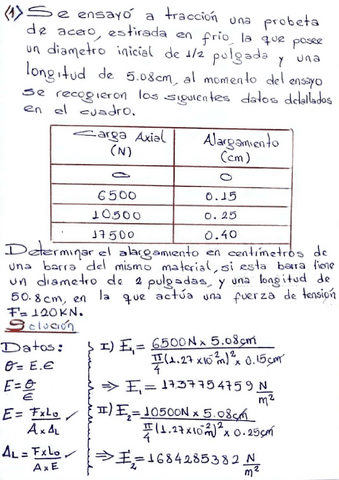 (1) Se ensayó a tracción una probeta
de acero, estirada en frio, la que posee
un diametro inicial de 1/2 pulgada y una
longitud de 5.08cm, al momento del ensayo
se recogieron los siguientes datos detallados
en el cuadro.
Carga Axial (N) | Alargamiento (cm)
0 | 0
6500 | 0.15
10500 | 0.25
17500 | 0.40
Determinar el alargamiento en centímetros de
una barra del mismo material, si esta barra tiene
un diametro de 2 pulgadas, y una longitud de
50.8cm, en la que actúa una fuerza de tensión
F=120KN.
Solución
Datos:
σ=E.ϵ
E=σ/ϵ
E=FxLo/AxΔL
ΔL=FxLo/AxE
I) E₁=6500Nx5.08cm/π/4(1.27x10⁻²m)²x0.15cm
⇒ E₁=1737754759 N/m²
II) E₂=10500Nx5.08cm/π/4(1.27x10⁻²m)²x0.25cm
⇒ E₂=1684285382 N/m²